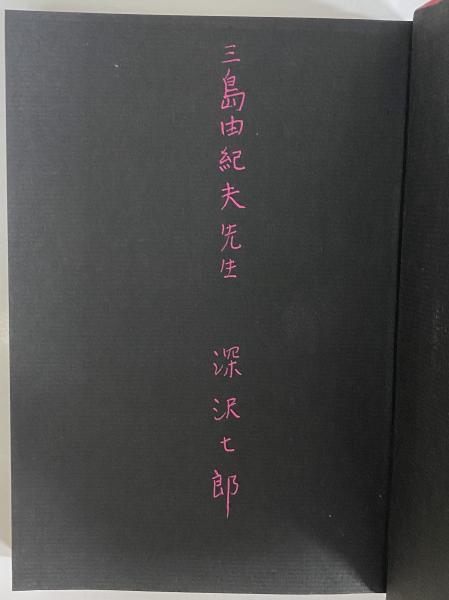 三島由紀夫先生
深沢七郎